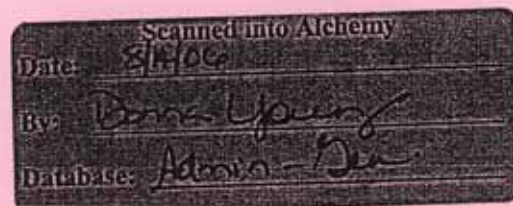 Scanned into Alchemy
Date: 8/14/06
By: Donna Young
Database: Admin - Gen.